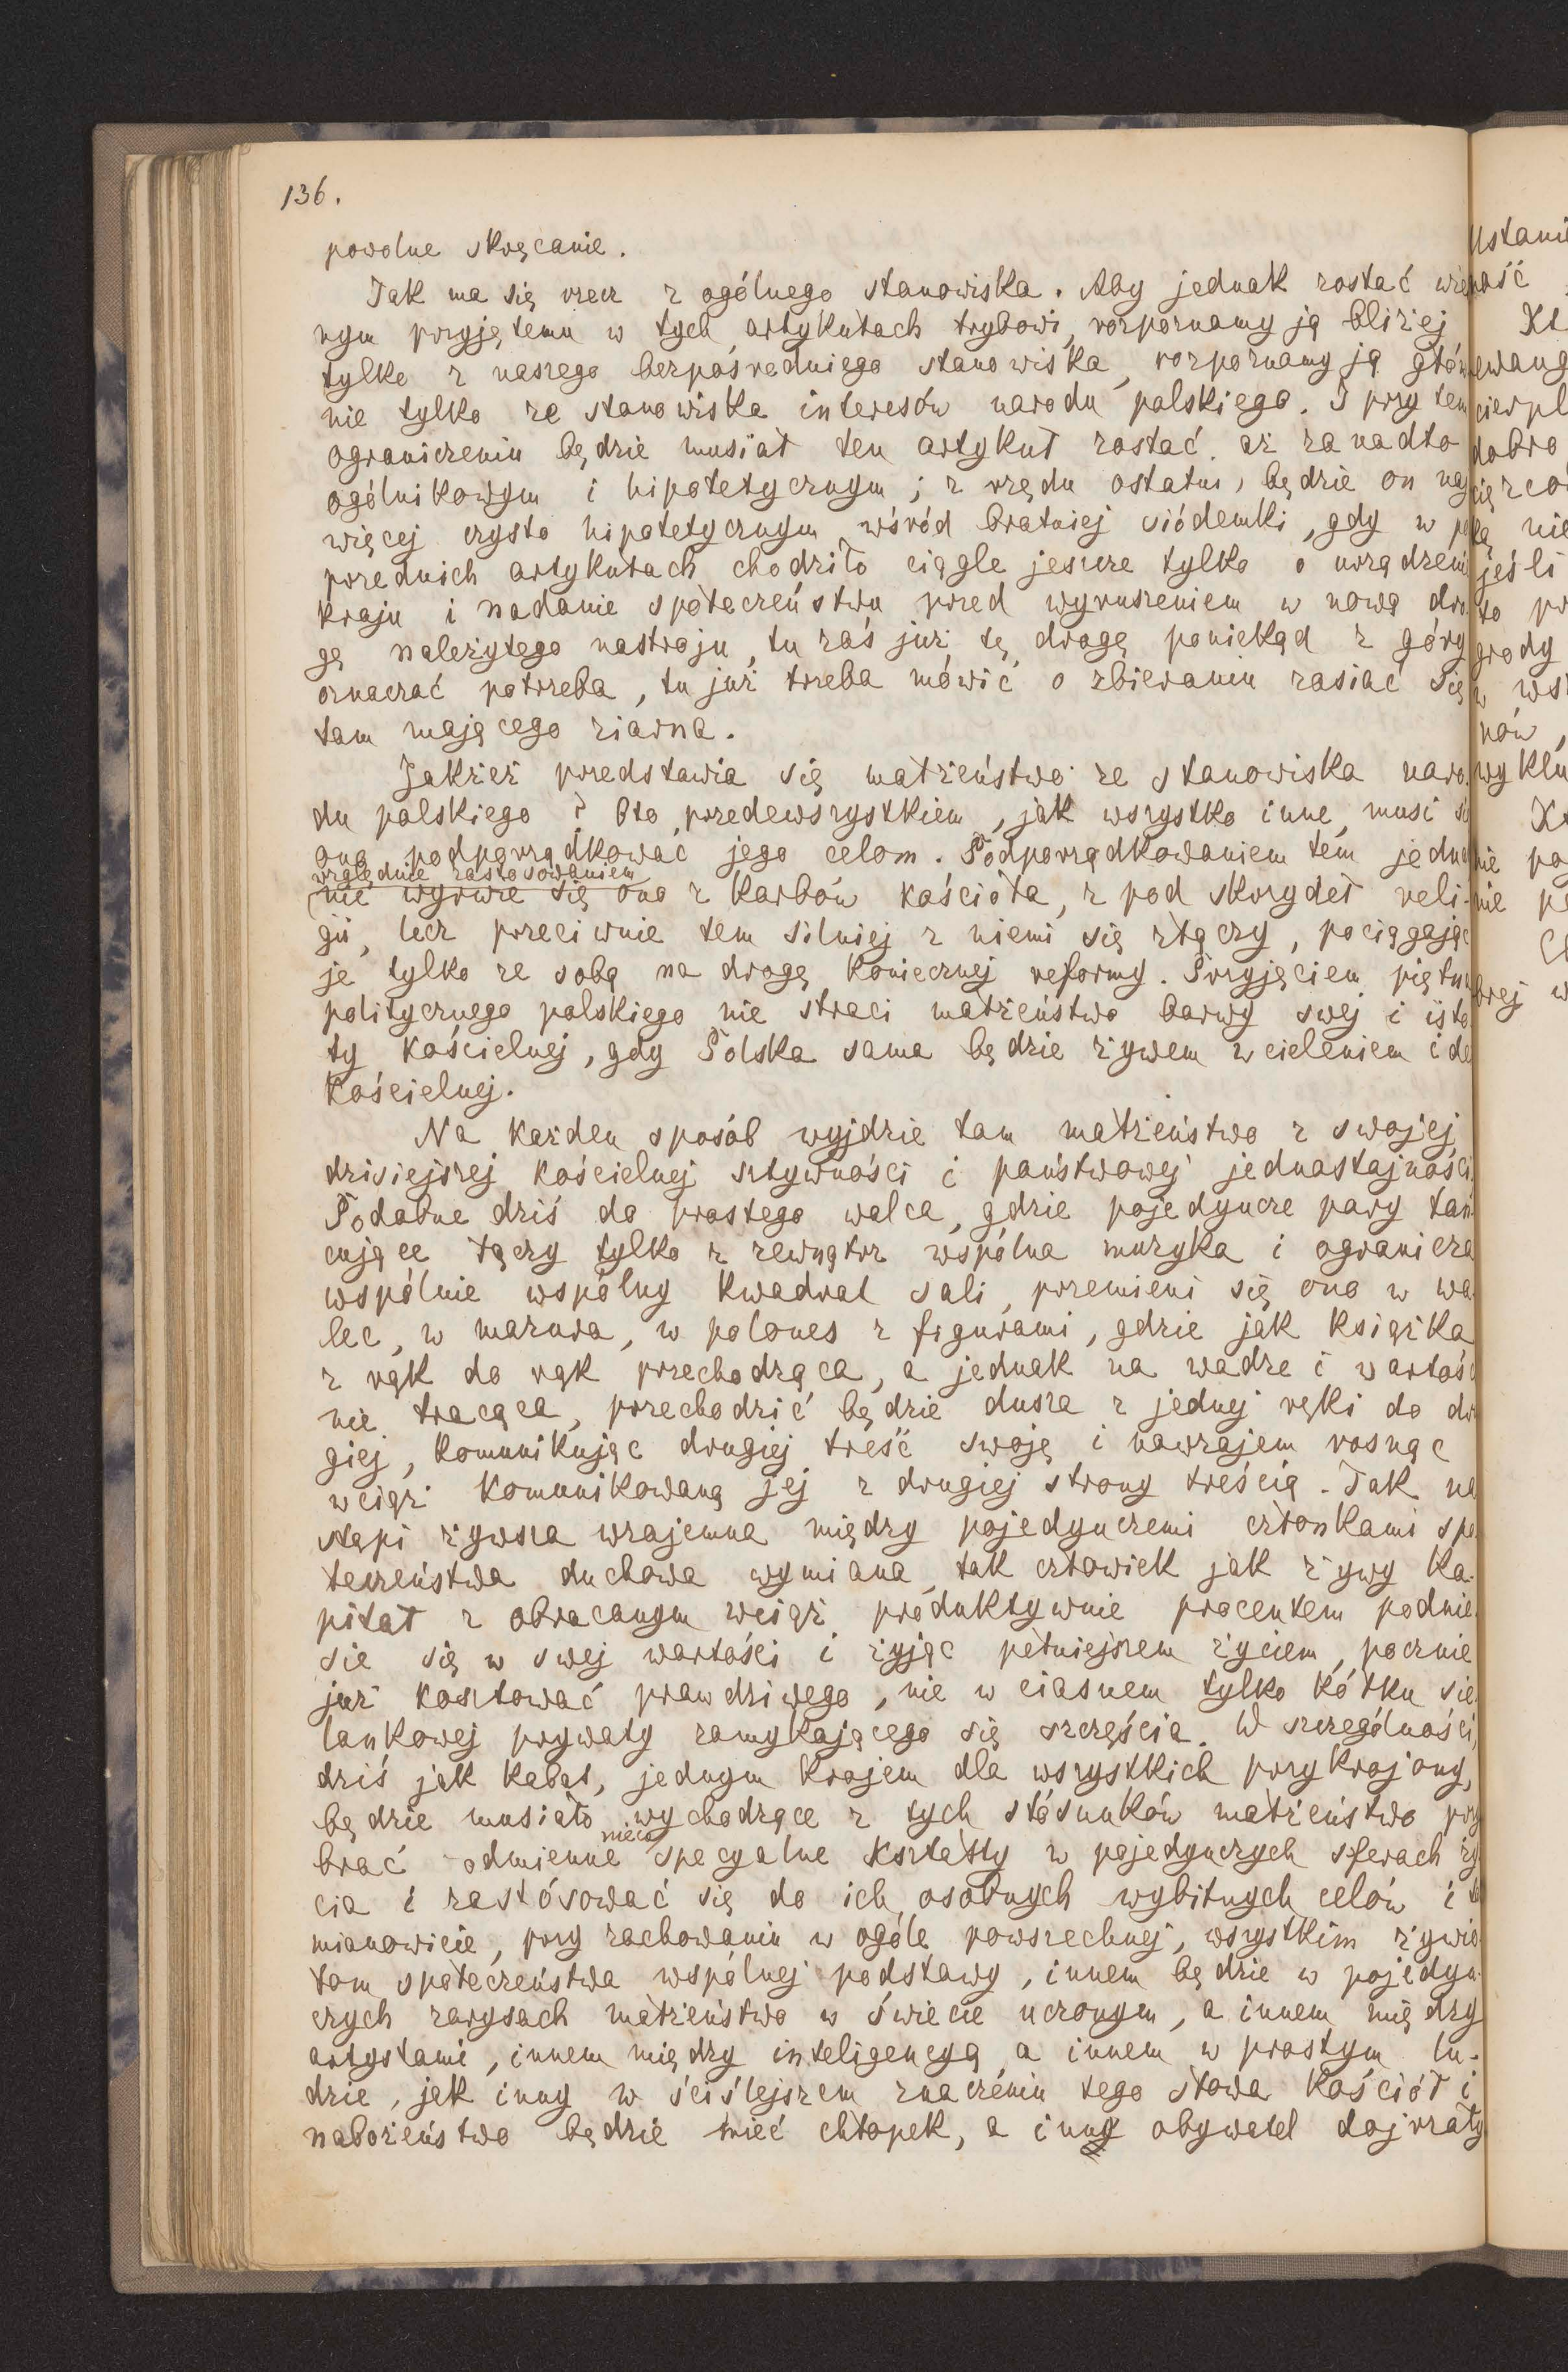 136.
powolne skręcanie.
Tak ma się rzecz z ogólnego stanowiska. Aby jednak zostać wier
nym przyjętemu w tych artykułach trybowi, rozpoznamy ją bliżej
tylko z naszego bezpośredniego stanowiska, rozpoznamy ją głów
nie tylko ze stanowiska interesów narodu polskiego. I przy tem
ograniczeniu będzie musiał ten artykuł zostać aż za nadto
ogólnikowym i hipotetycznym; z rzędu ostatni, będzie on naj
więcej czysto hipotetycznym wśród bratniej siódemki, gdy w po
przednich artykułach chodziło ciągle jeszcze tylko o urządzeni
kraju i nadanie społeczeństwu przed wyruszeniem w nową dro
gę należytego nastroju, tu zaś już tę drogę poniekąd z góry
oznaczać potrzeba, tu już trzeba mówić o zbieraniu zasiać się
tam mającego ziarna.
Jakżeż przedstawia się małżeństwo ze stanowiska naro
du polskiego? Oto przedewszystkiem, jak wszystko inne, musi si
ono podporządkować jego celom. Podporządkowaniem tem jedna
względnie zastosowaniem
nie wyrwie się ono z karbów kościoła, z pod skrzydeł reli-
gii, lecz przeciwnie tem silniej z niemi się złączy, pociągając
je tylko ze sobą na drogę koniecznej reformy. Przyjęciem piętna
politycznego polskiego nie straci małżeństwo barwy swej i isto
ty kościelnej, gdy Polska sama będzie żywem wcieleniem ide
kościelnej.
Na każden sposób wyjdzie tam małżeństwo z swojej
dzisiejszej kościelnej sztywności i państwowej jednostajności
Podobne dziś do prostego walca, gdzie pojedyncze pary tań
cujące łączy tylko z zewnątrz wspólna muzyka i ogranicza
wspólnie wspólny kwadrat sali, przemieni się ono w wa
lec, w mazura, w polones z figurami, gdzie jak książka
z rąk do rąk przechodząca, a jednak na wadze i wartośc
nie tracąca, przechodzić będzie dusza z jednej ręki do dru
giej, komunikując drugiej treść swoję i nawzajem rosnąc
wciąż komunikowaną jej z drugiej strony treścią. Tak na
stąpi żywsza wzajemna między pojedynczemi członkami spo
łeczeństwa duchowa wymiana, tak człowiek jak żywy ka-
pitał z obracanym wciąż produktywnie procentem podnie
sie się w swej wartości i żyjąc pełniejszem życiem, pocznie
już kosztować prawdziwego, nie w ciasnem tylko kółku sie
lankowej prywaty zamykającego się szczęścia. W szczególności,
dziś jak kabat, jednym krojem dla wszystkich przykrojony,
będzie musiało wychodzące z tych stósunków małżeństwo przy
nieco
brać odmienne specyalne kształty w pojedynczych sferach ży
cia i zastósować się do ich osobnych wybitnych celów i to
mianowicie, przy zachowaniu w ogóle powszechnej, wszystkim żywio
łom społeczeństwa wspólnej podstawy, innem będzie w pojedyn-
czych zarysach małżeństwo w świecie uczonym, a innem między
artystami, innem między inteligencyą a innem w prostym lu-
dzie, jak inny w ściślejszem znaczeniu tego słowa kościół i
nabożeństwo będzie mieć chłopek, a inny obywatel dojrzały